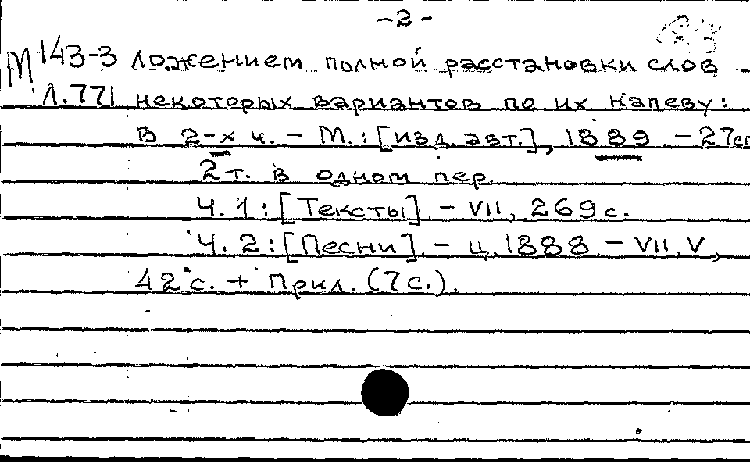 -2-
М 143-3 ложением полной расстановки слов
Л.771 некоторых вариантов по их напеву:
В 2-х ч. - М.: [изд. авт.], 1889 - 27см
2т. в одном пер.
Ч. 1: [Тексты] - VII, 269 с.
Ч. 2: [Песни] - ц. 1888 - VII, V,
42 с. + Прил. (7с.).